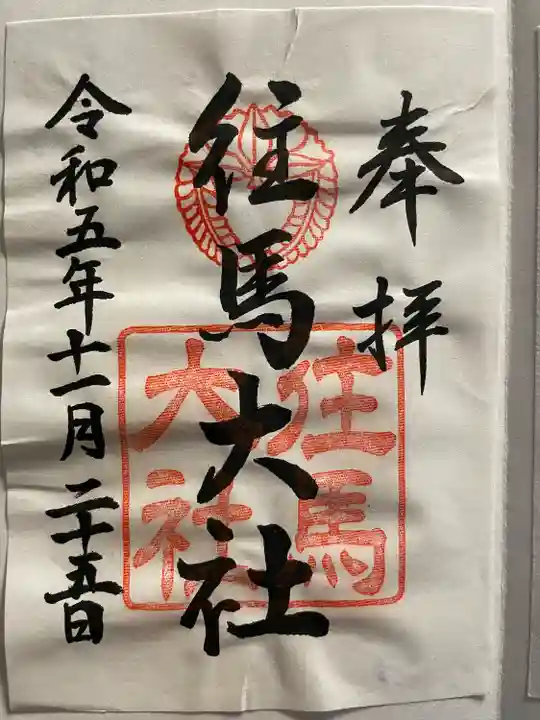 奉拝
往馬大社
往馬大社
令和五年十一月二十五日